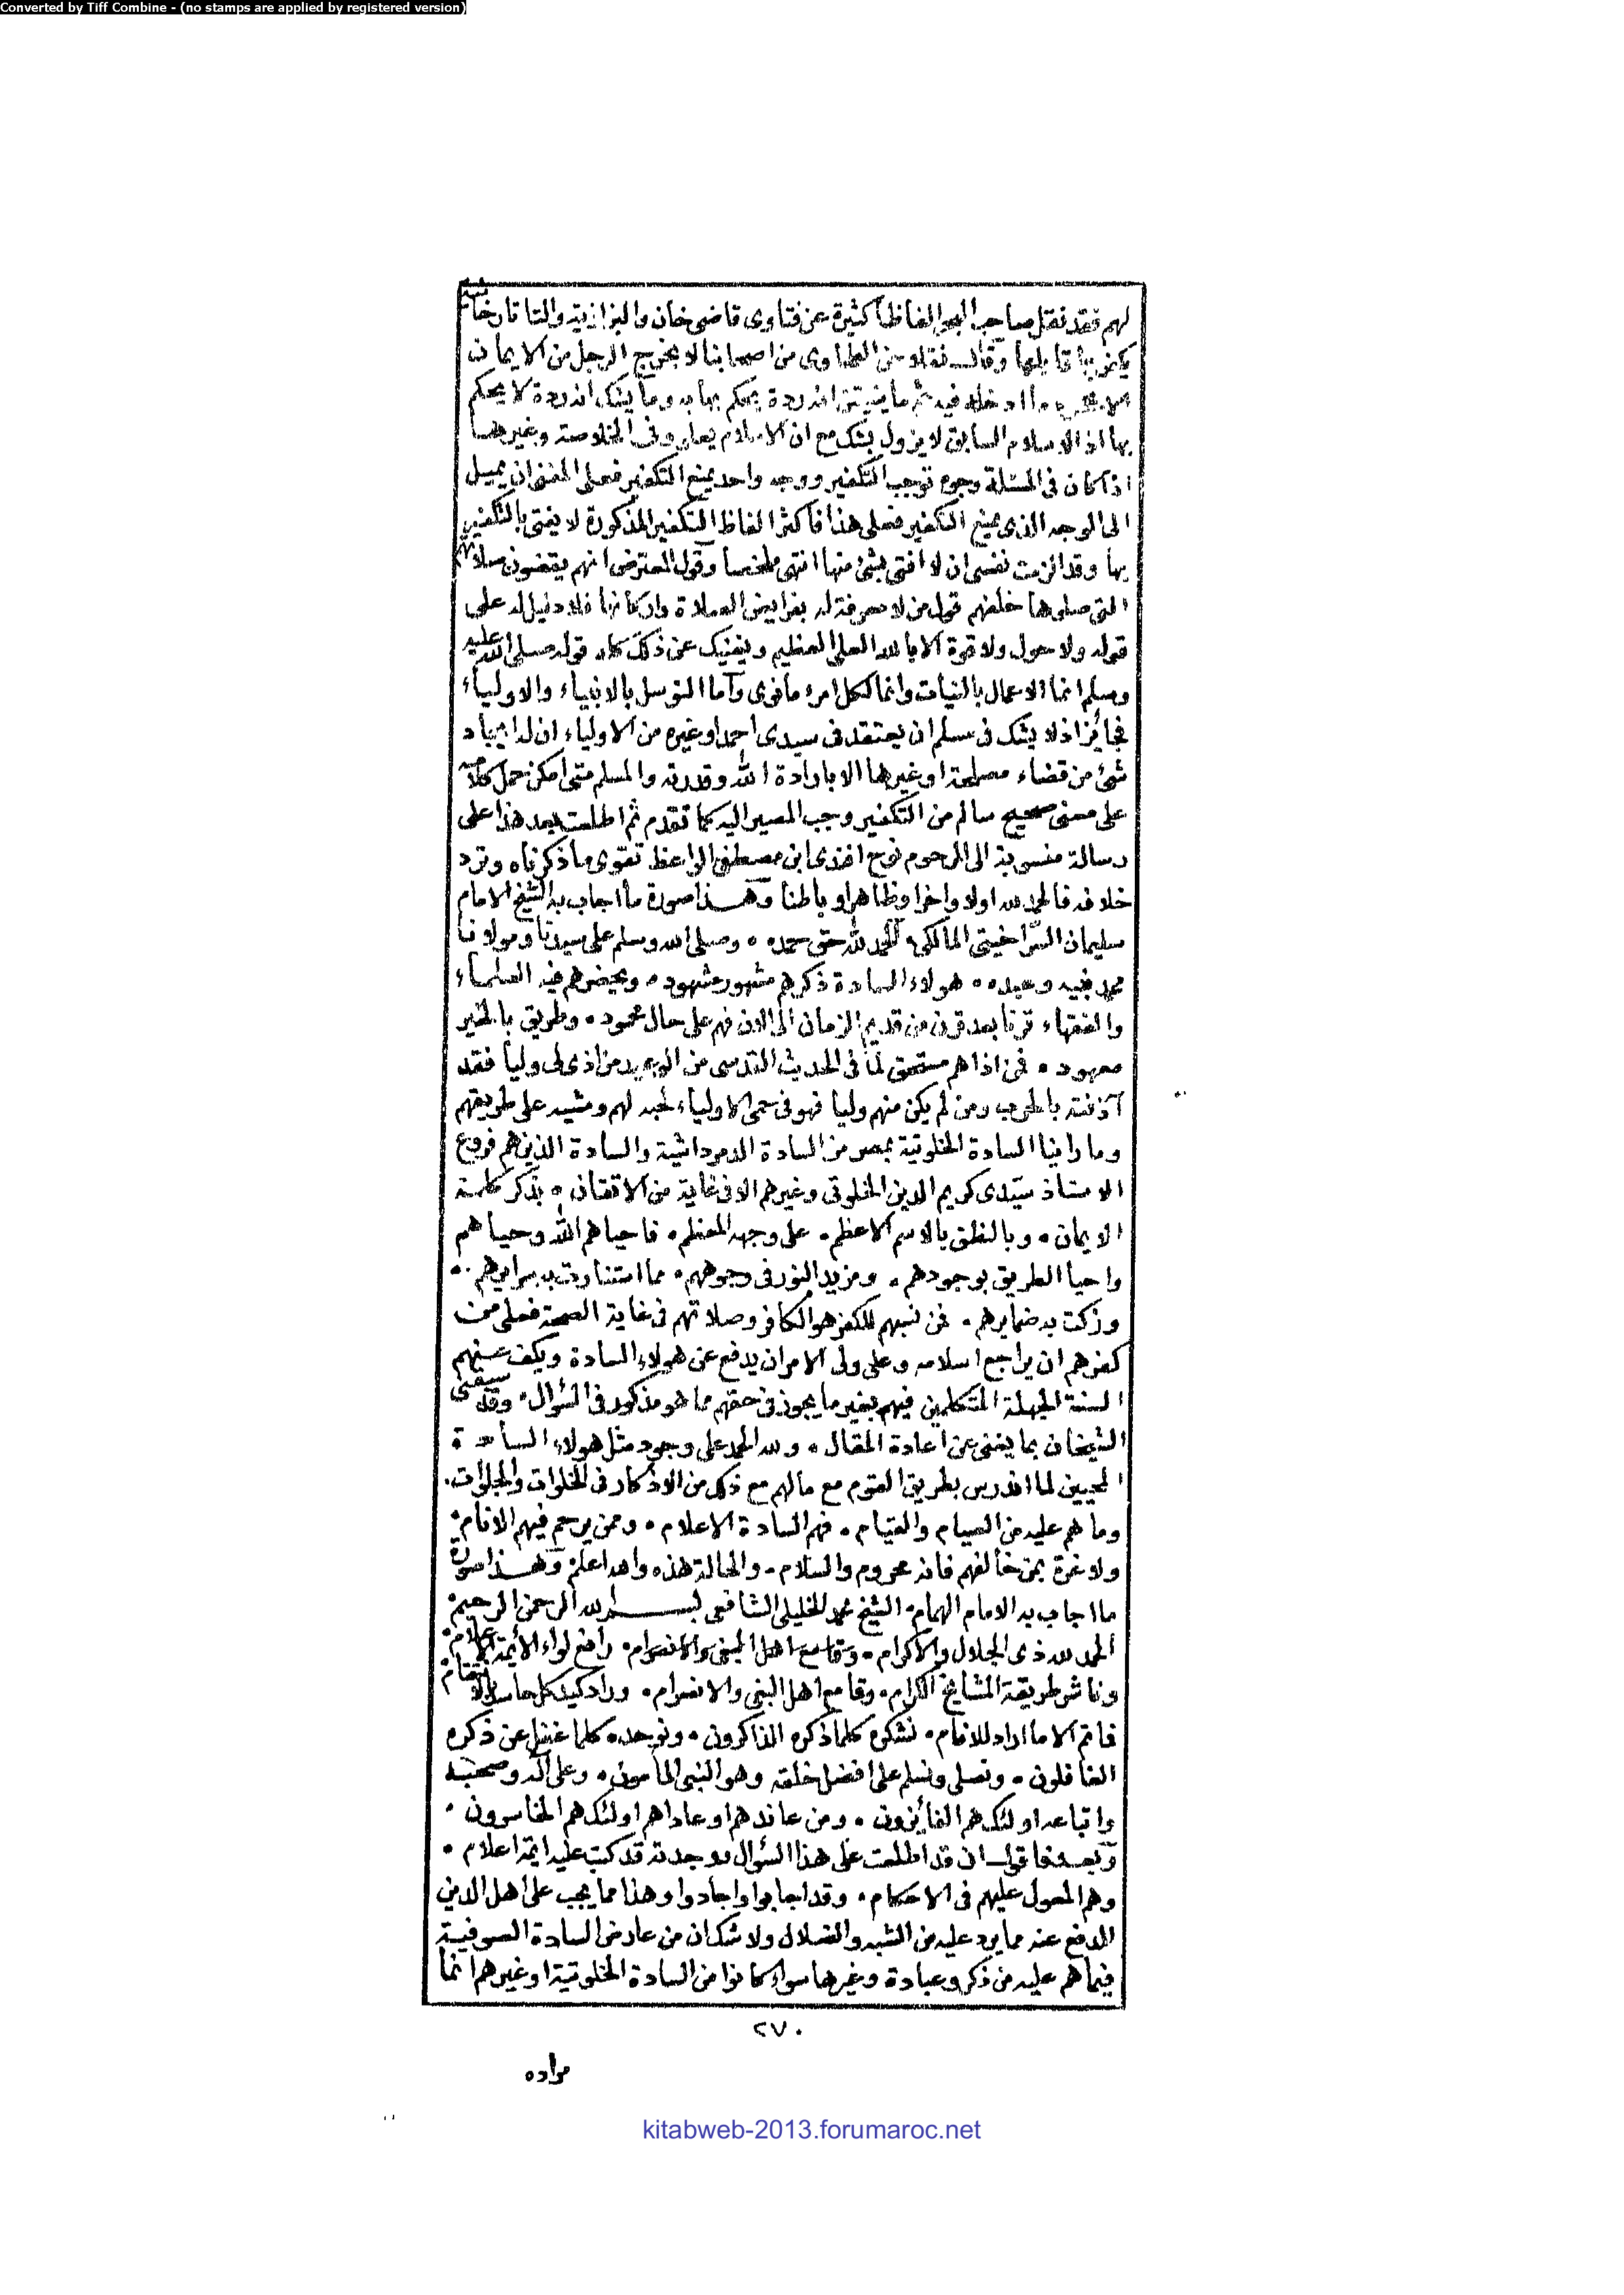 Converted by Tiff Combine - (no stamps are applied by registered version)
لهم فقد نقل صاحب البحر الفاظا كثيرة عن فتاوى قاضى خان والبزازية والتاتارخانية
يكفر بها قايلها وقال نقلا عن الطحاوى من اصحابنا لا يخرج الرجل من الايمان
الا جحود ما ادخله فيه ثم ما يتيقن انه ردة يحكم بها به وما يشك انه ردة لا يحكم
بها اذ الاسلام السابق لا يزول بشك مع ان الاسلام يعلو وفى الخلاصة وغيرها
اذا كان فى المسئلة وجوه توجب التكفير ووجه واحد يمنع التكفير فعلى المفتى ان يميل
الى الوجه الذى يمنع التكفير فعلى هذا فاكثر الفاظ التكفير المذكورة لا يفتى بالتكفير
بها وقد الزمت نفسى ان لا افتى بشئ منها انتهى ملخصا وقول المعترض انهم يقضون صلاتهم
التى صلوها خلفهم قول من لا معرفة له بفرايض الصلاة واركانها فلا دليل له على
قوله ولا حول ولا قوة الا بالله العلى العظيم ويغنيك عن ذلك كله قوله صلى الله عليه
وسلم انما الاعمال بالنيات وانما لكل امرء ما نوى وآما التوسل بالانبياء والاولياء
فجائز اذ لا يشك فى مسلم ان يعتقد فى سيدى احمد او غيره من الاولياء ان له ايجاد
شئ من قضاء مصلحة او غيرها الا بارادة الله وقدرته والمسلم متى امكن حمل كلامه
على معنى صحيح سالم من التكفير وجب المصير اليه كما تقدم ثم اطلعت بعد هذا على
رسالة منسوبة الى المرحوم نوح افندى ابن مصطفى الواعظ تقوى ما ذكرناه وترد
خلافه فالحمد لله اولا واخرا وظاهرا وباطنا وهذا صورة ما اجاب به الشيخ الامام
سليمان الشبراخيتى المالكى الحمد لله حق حمده ٠ وصلى الله وسلم على سيدنا ومولانا
محمد نبيه وعبده ٠ هولاء السادة ذكرهم مشهور مشهود ٠ ويحضرهم فيه العلماء
والفقهاء قرنا بعد قرن من قديم الزمان الى الان فهم على حال محمود ٠ وطريق بالخير
معهود ٠ فمن اذاهم مستحق لما فى الحديث القدسى من الوعيد من اذى لى وليا فقد
آذنته بالحرب ومن لم يكن منهم وليا فهو فى حمى الاولياء لحبه لهم ومشيه على طريقهم
وما راينا السادة الخلوتية بمصر من السادة الدمرداشية والسادة الذين هم فروع
الاستاذ سيدى كريم الدين الخلوتى وغيرهم الا فى غاية من الاتقان ٠ بذكر كلمة
الايمان ٠ وبالنطق بالاسم الاعظم ٠ على وجهه المعظم ٠ فاحياهم الله وحياهم
واحيا الطريق بوجودهم ٠ ومزيد النور فى وجوههم ٠ مما استنارت به سرايرهم ٠
وزكت به ضمايرهم ٠ فمن نسبهم للكفر هو الكافر وصلاتهم فى غاية الصحة فعلى من
كفرهم ان يراجع اسلامه وعلى ولى الامر ان يدفع عن هولاء السادة ويكف عنهم
السنة الجهلة المتكلمين فيهم بغير ما يجوز فى حقهم مما هو مذكور فى السؤال ٠ وقد سبقنى
الشيخان بما يغنى عن اعادة المقال ٠ ولله الحمد على وجود مثل هولاء السادة
المحيين لما اندرس بطريق القوم مع مالهم مع ذلك من الاذكار فى الخلوات والجلوات ٠
وما هم عليه من الصيام والقيام ٠ فهم السادة الاعلام ٠ وممن يرحم فيهم الانام ٠
ولا عبرة بمن خالفهم فانه محروم والسلام ٠ والحالة هذه والله اعلم وهذا صورة
ما اجاب به الامام الهمام ٠ الشيخ محمد الخليلى الشافعى بسم الله الرحمن الرحيم
الحمد لله ذى الجلال والاكرام ٠ وقامع اهل البغى والانصرام ٠ رافع لواء الأيمة الاعلام ٠
وناشر طريقة المشايخ الكرام ٠ وقامع اهل البغى والانصرام ٠ وراد كيد كل حاسد
فاتم الا ما اراد للانام ٠ نشكره كلما ذكره الذاكرون ٠ ونوحده كلما غفل عن ذكره
الغافلون ٠ ونصلى ونسلم على افضل خلقه وهو النبى المامون ٠ وعلى آله وصحبه
واتباعه اولئك هم الفائزون ٠ ومن عاندهم او عاداهم اولئك هم الخاسرون ٠
وبعد فاقول ان قد اطلعت على هذا السؤال فوجدته قد كتب عليه ايمة اعلام ٠
وهم المعول عليهم فى الاحكام ٠ وقد اجابوا واجادوا وهذا مما يجب على اهل الدين
الدفع عنه مما يرد عليه من الشبه والضلال ولا شك ان من عارض السادة الصوفية
فيما هم عليه من ذكر وعبادة وغيرها سواء كانوا من السادة الخلوتية او غيرهم انما
٢٧٠
مراده
kitabweb-2013.forumaroc.net